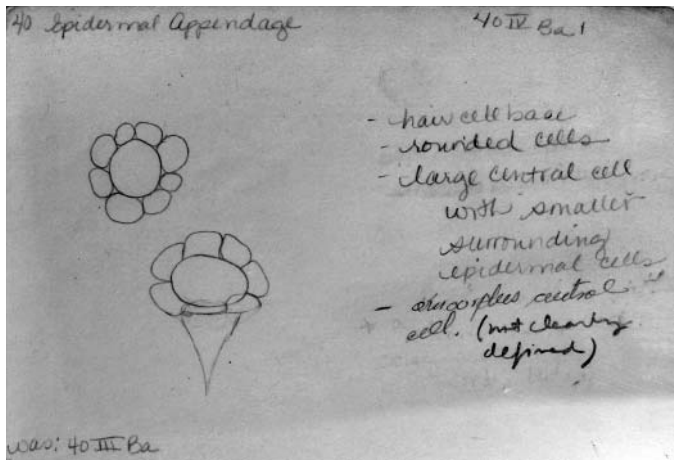 40 Epidermal Appendage
40 IV Ba 1
- hair cell base
- rounded cells
- large central cell
with smaller
surrounding
epidermal cells
- central
cell. (not clearly
defined)
was: 40 III Ba